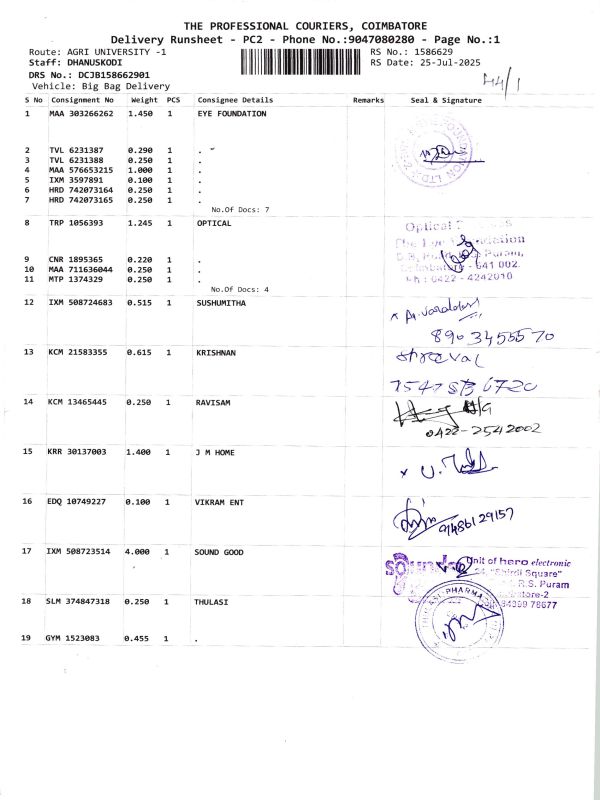 THE PROFESSIONAL COURIERS, COIMBATORE
Delivery Runsheet - PC2 - Phone No.:9047080280 - Page No.:1
Route: AGRI UNIVERSITY -1 RS No.: 1586629
Staff: DHANUSKODI RS Date: 25-Jul-2025
DRS No.: DCJB158662901
Vehicle: Big Bag Delivery
S No Consignment No Weight PCS Consignee Details Remarks Seal & Signature
1 MAA 303266262 1.450 1 EYE FOUNDATION
2 TVL 6231387 0.290 1 .
3 TVL 6231388 0.250 1 .
4 MAA 576653215 1.000 1 .
5 IXM 3597891 0.100 1 .
6 HRD 742073164 0.250 1 .
7 HRD 742073165 0.250 1 .
No.Of Docs: 7
8 TRP 1056393 1.245 1 OPTICAL
Optical
The Eye Foundation
Puram,
Coimbatore - 641 002.
Ph : 0422 - 4242010
9 CNR 1895365 0.220 1 .
10 MAA 711636044 0.250 1 .
11 MTP 1374329 0.250 1 .
No.Of Docs: 4
12 IXM 508724683 0.515 1 SUSHUMITHA
8903455570
13 KCM 21583355 0.615 1 KRISHNAN
14 KCM 13465445 0.250 1 RAVISAM
0422-2542002
15 KRR 30137003 1.400 1 J M HOME
16 EDQ 10749227 0.100 1 VIKRAM ENT
9486129157
17 IXM 508723514 4.000 1 SOUND GOOD
Unit of hero electronic
"Shirdi Square"
R.S. Puram
18 SLM 374847318 0.250 1 THULASI
PHARMA
19 GYM 1523083 0.455 1 .